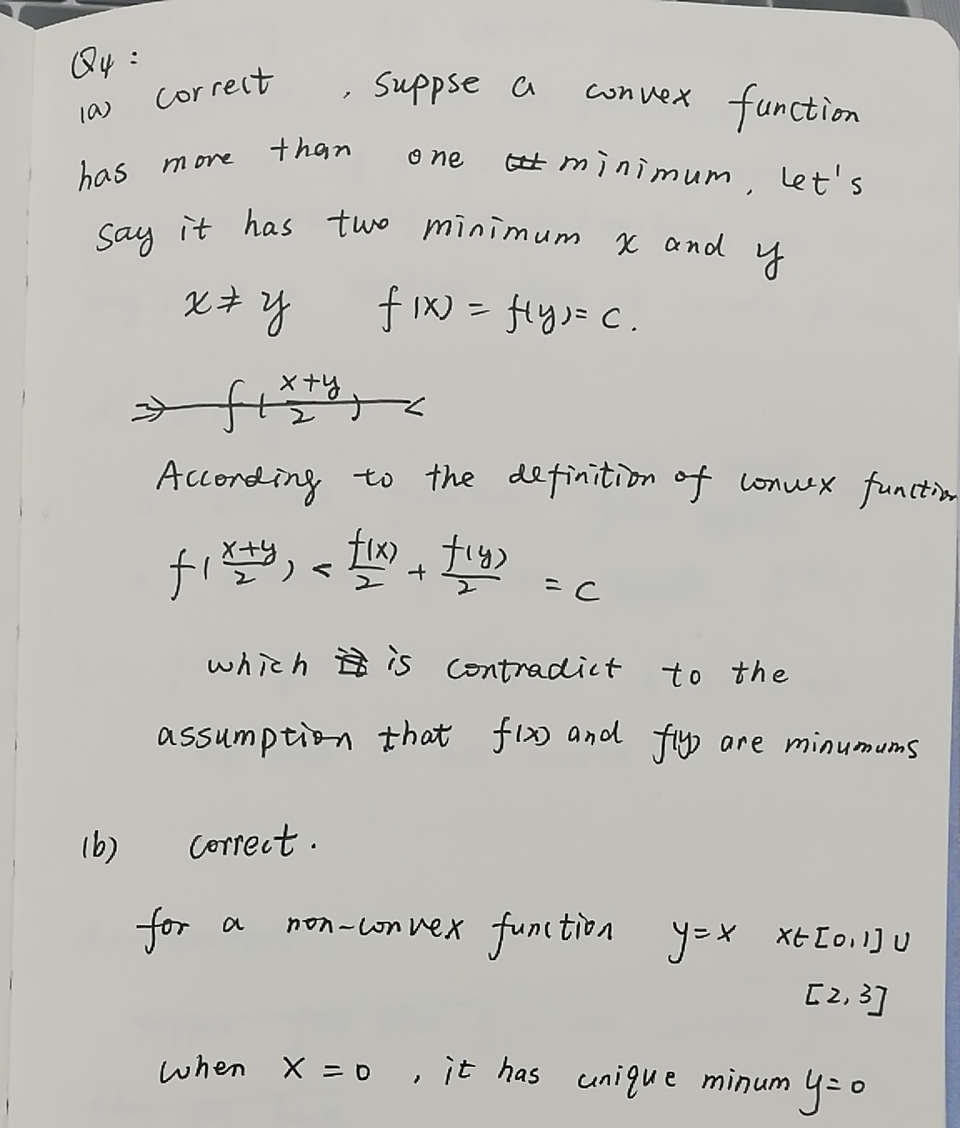 Q4:
(a) correct , suppse a convex function
has more than one minimum, Let's
say it has two minimum x and y
x≠y f(x) = f(y)= C.
⇒ f(x+y/2) <
According to the definition of convex function
f(x+y/2) < f(x)/2 + f(y)/2 = C
which is contradict to the
assumption that f(x) and f(y) are minumums
(b) correct.
for a non-convex function y=x x∈[0,1]∪
[2,3]
when x=0 , it has unique minum y=0